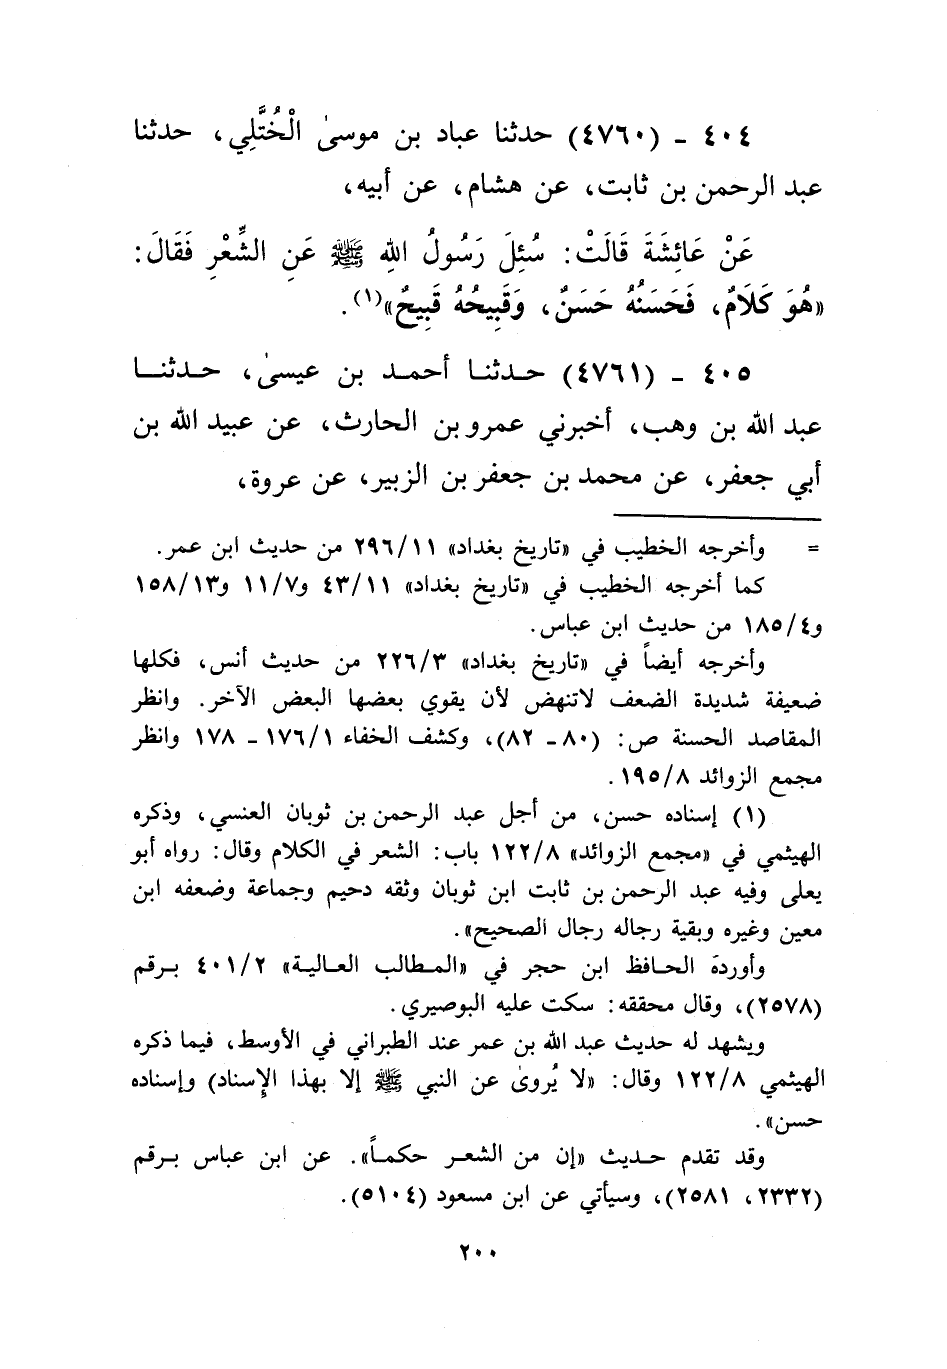 ٤٠٤ ـ (٤٧٦٠) حدثنا عباد بن موسىٰ الْخُتَّلِي، حدثنا
عبد الرحمن بن ثابت، عن هشام، عن أبيه،
عَنْ عَائِشَةَ قَالَتْ: سُئِلَ رَسُولُ اللهِ ﷺ عَنِ الشِّعْرِ فَقَالَ:
«هُوَ كَلَامٌ، فَحَسَنُهُ حَسَنٌ، وَقَبِيحُهُ قَبِيحٌ»(١).
٤٠٥ ـ (٤٧٦١) حدثنا أحمد بن عيسىٰ، حدثنا
عبد الله بن وهب، أخبرني عمرو بن الحارث، عن عبيد الله بن
أبي جعفر، عن محمد بن جعفر بن الزبير، عن عروة،
= وأخرجه الخطيب في «تاريخ بغداد» ٢٩٦/١١ من حديث ابن عمر.
كما أخرجه الخطيب في «تاريخ بغداد» ٤٣/١١ و١١/٧ و١٥٨/١٣
و١٨٥/٤ من حديث ابن عباس.
وأخرجه أيضاً في «تاريخ بغداد» ٢٢٦/٣ من حديث أنس، فكلها
ضعيفة شديدة الضعف لاتنهض لأن يقوي بعضها البعض الآخر. وانظر
المقاصد الحسنة ص: (٨٠ ـ ٨٢)، وكشف الخفاء ١٧٦/١ ـ ١٧٨ وانظر
مجمع الزوائد ١٩٥/٨.
(١) إسناده حسن، من أجل عبد الرحمن بن ثوبان العنسي، وذكره
الهيثمي في «مجمع الزوائد» ١٢٢/٨ باب: الشعر في الكلام وقال: رواه أبو
يعلى وفيه عبد الرحمن بن ثابت ابن ثوبان وثقه دحيم وجماعة وضعفه ابن
معين وغيره وبقية رجاله رجال الصحيح».
وأوردَه الحافظ ابن حجر في «المطالب العالية» ٤٠١/٢ برقم
(٢٥٧٨)، وقال محققه: سكت عليه البوصيري.
ويشهد له حديث عبد الله بن عمر عند الطبراني في الأوسط، فيما ذكره
الهيثمي ١٢٢/٨ وقال: «لا يُروىٰ عن النبي ﷺ إلا بهذا الإِسناد) وإسناده
حسن».
وقد تقدم حديث «إن من الشعر حكماً». عن ابن عباس برقم
(٢٣٣٢، ٢٥٨١)، وسيأتي عن ابن مسعود (٥١٠٤).
٢٠٠